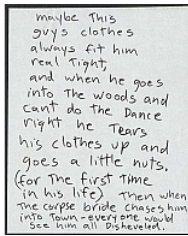 maybe This
guys clothes
always fit him
real Tight,
and when he goes
into The woods and
cant do the Dance
right he Tears
his clothes up and
goes a little nuts.
(for The first Time
in his life) Then when
The corpse bride chases him
into Town - everyone would
see him all Disheveled.